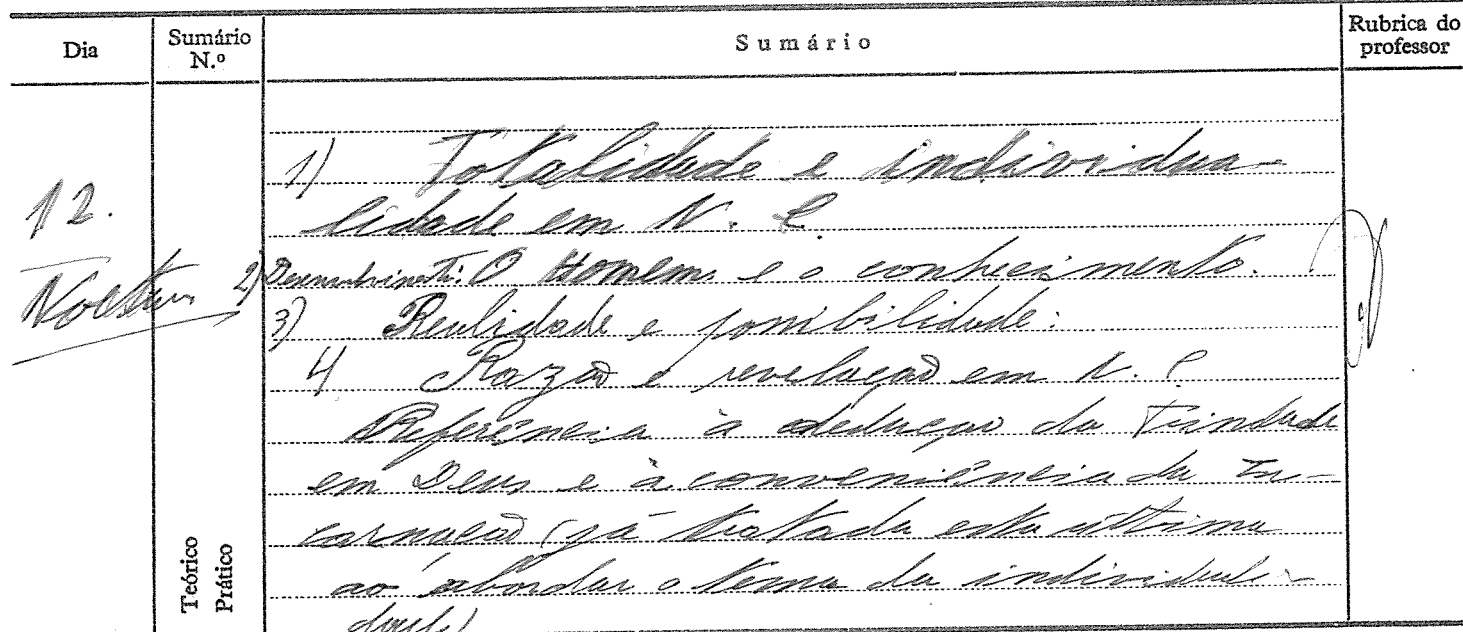 Dia
Sumário
N.º
Sumário
Rubrica do
professor
12.
1) Totalidade e individua-
lidade em N. C.
2) Desenvolvimento: O Homem e o conhecimento.
3) Realidade e possibilidade.
4) Razão e revelação em N. C.
Referência à dedução da Trindade
em Deus e à conveniência da In-
carnação (já tratada esta última
ao abordar o tema da individuali-
dade)
Teórico
Prático